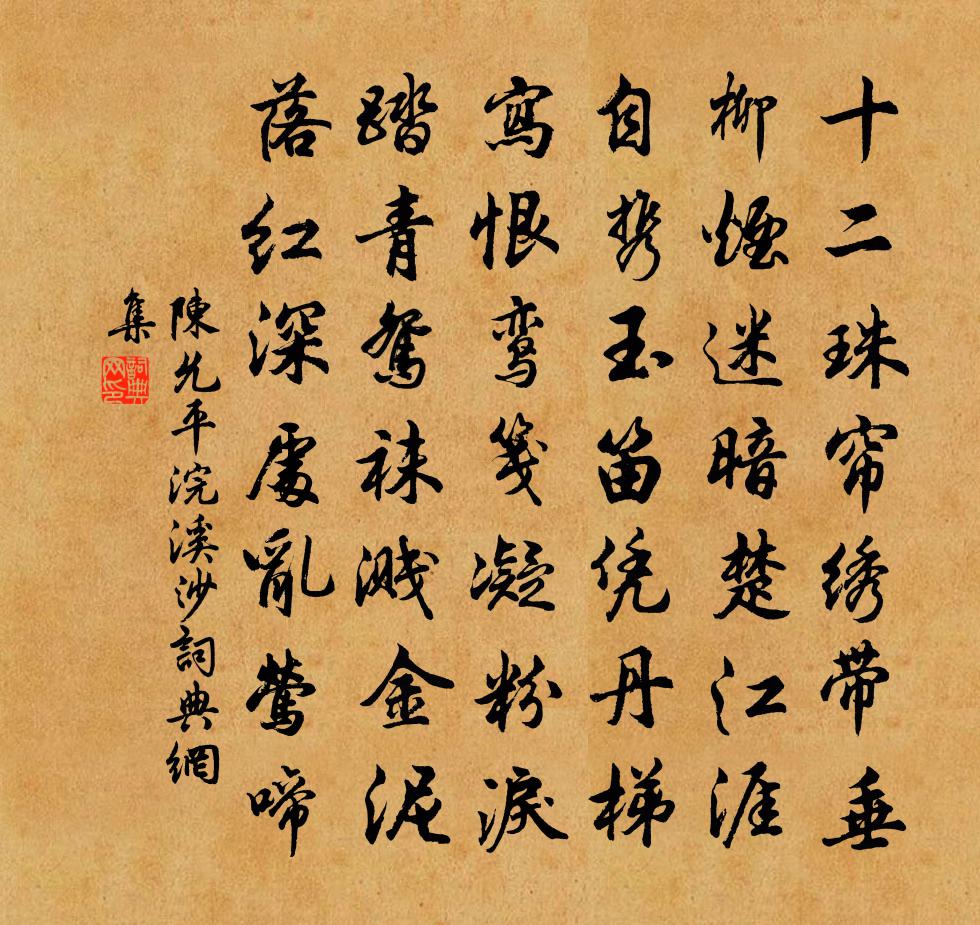 十二珠帘绣带垂
柳煙迷暗楚江涯
自携玉笛凭丹梯
寫恨鸾笺凝粉淚
踏青鸳袜溅金泥
落红深處亂莺啼
陳允平浣溪沙詞典網
集
詞典网印